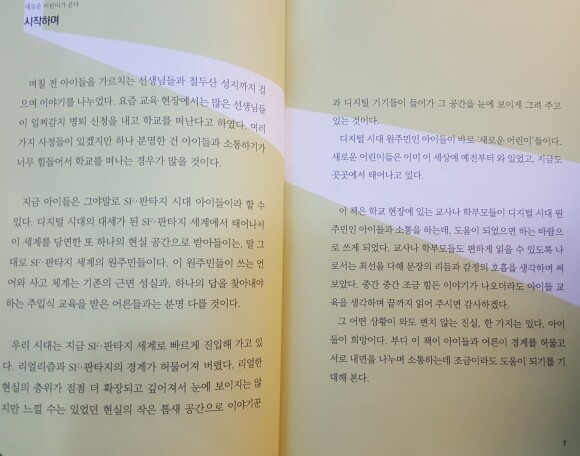 새로운 어린이가 온다
시작하며
며칠 전 아이들을 가르치는 선생님들과 절두산 성지까지 걸
으며 이야기를 나누었다. 요즘 교육 현장에서는 많은 선생님들
이 일찌감치 명퇴 신청을 내고 학교를 떠난다고 하였다. 여러
가지 사정들이 있겠지만 하나 분명한 건 아이들과 소통하기가
너무 힘들어서 학교를 떠나는 경우가 많을 것이다.
지금 아이들은 그야말로 SF·판타지 시대 아이들이라 할 수
있다. 디지털 시대의 대세가 된 SF·판타지 세계에서 태어나서
이 세계를 당연한 또 하나의 현실 공간으로 받아들이는, 말 그
대로 SF·판타지 세계의 원주민들이다. 이 원주민들이 쓰는 언
어와 사고 체계는 기존의 근면 성실과, 하나의 답을 찾아내야
하는 주입식 교육을 받은 어른들과는 분명 다를 것이다.
우리 시대는 지금 SF·판타지 세계로 빠르게 진입해 가고 있
다. 리얼리즘과 SF·판타지의 경계가 허물어져 버렸다. 리얼한
현실의 층위가 점점 더 확장되고 깊어져서 눈에 보이지는 않
지만 느낄 수는 있었던 현실의 작은 틈새 공간으로 이야기꾼
과 디지털 기기들이 들어가 그 공간을 눈에 보이게 그려 주고
있는 것이다.
디지털 시대 원주민인 아이들이 바로 '새로운 어린이'들이다.
새로운 어린이들은 이미 이 세상에 예전부터 와 있었고, 지금도
곳곳에서 태어나고 있다.
이 책은 학교 현장에 있는 교사나 학부모들이 디지털 시대 원
주민인 아이들과 소통을 하는데, 도움이 되었으면 하는 바람으
로 쓰게 되었다. 교사나 학부모들도 편하게 읽을 수 있도록 나
로서는 최선을 다해 문장의 리듬과 감정의 호흡을 생각하며 써
보았다. 중간 중간 조금 힘든 이야기가 나오더라도 아이들 교
육을 생각하며 끝까지 읽어 주시면 감사하겠다.
그 어떤 상황이 와도 변치 않는 진실, 한 가지는 있다. 아이
들이 희망이다. 부디 이 책이 아이들과 어른이 경계를 허물고
서로 내면을 나누며 소통하는데 조금이라도 도움이 되기를 기
대해 본다.
7